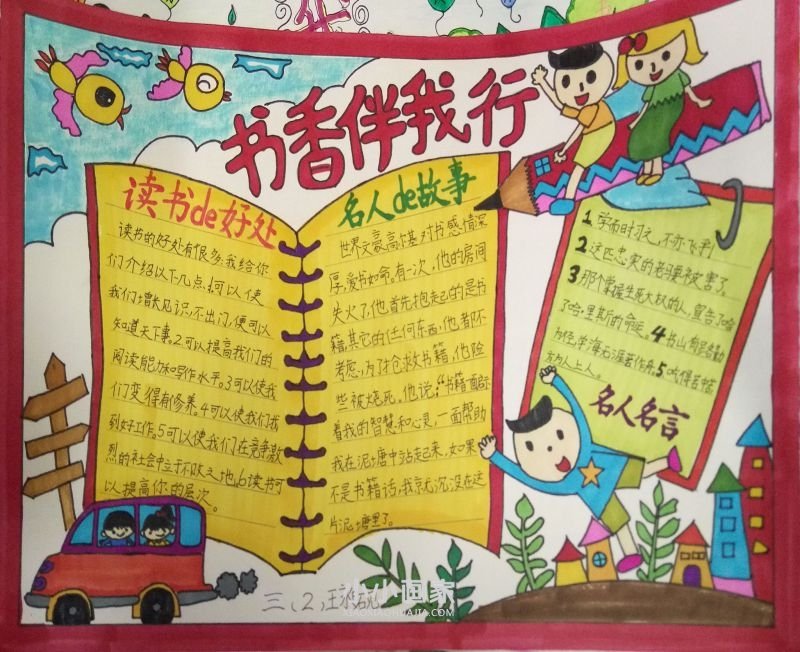 书香伴我行
读书de好处
读书的好处有很多.我给你
们介绍以下几点.1.可以使
我们增长见识,不出门,便可以
知道天下事.2.可以提高我们的
阅读能力和写作水平.3.可以使我
们变得有修养.4.可以使我们找
到好工作.5.可以使我们在竞争激
烈的社会中立于不败之地,6.读书可
以提高你的层次。
名人de故事
世界文豪高尔基对书感情深
厚,爱书如命。有一次,他的房间
失火了,他首先抱起的是书
籍,其它的任何东西,他都不
考虑,为了抢救书籍,他险
些被烧死。他说:“书籍面
着我的智慧和心灵,一面帮助
我在泥塘中站起来,如果
不是书籍话,我京尤沉没在这
片泥塘里了。
1 学而时习之,不亦飞乎
2 这匹忠実的老骥被害了.
3 那个掌握生死大权的人,宣告了哈
了哈·里斯的命运。4 书山有路勤
为径,学海无涯苦作舟,5 吃得苦中苦
方为人上人。
名人名言
三、2,王
小画家